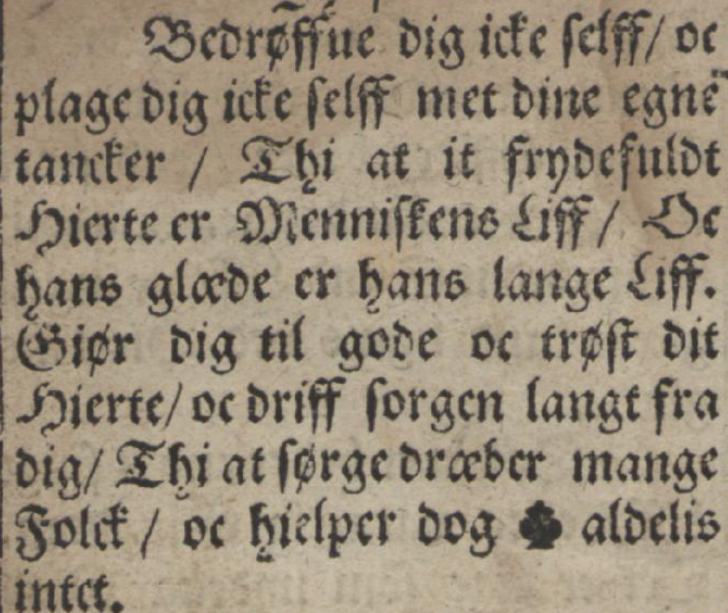 Bedrøffue dig icke selff/ oc
plage dig icke selff met dine egne
tancker / Thi at it frydefuldt
Hierte er Menniskens Liff / Oc
hans glæde er hans lange Liff.
Giør dig til gode oc trøst dit
Hierte/ oc driff sorgen langt fra
dig/ Thi at sørge dræber mange
Folck / oc hielper dog aldelis
intet.